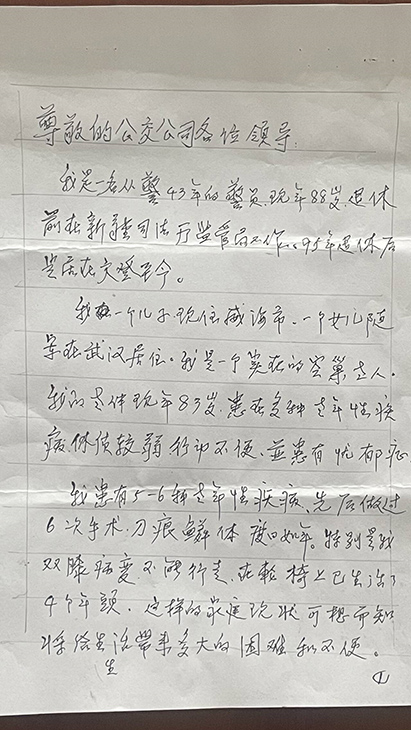 尊敬的公交公司各位领导:
我是一名从警43年的警员现年88岁退休
前在新疆司法厅监管局工作。95年退休后
定居在文登至今。
我一个儿子现住威海市、一个女儿随
军在武汉居住。我是一个实在的空巢老人。
我的老伴现年83岁.患有多种老年性疾
病体质较弱行动不便、並患有忧郁症
我患有5-6种老年性疾病、先后做过
6次手术.刀痕鳞体度日如年。特别是我
双膝病变不能行走、在轮椅上已生活了
4个年頭、这样的家庭现状可想而知
将给生活带来多大的困难和不便。
生
①